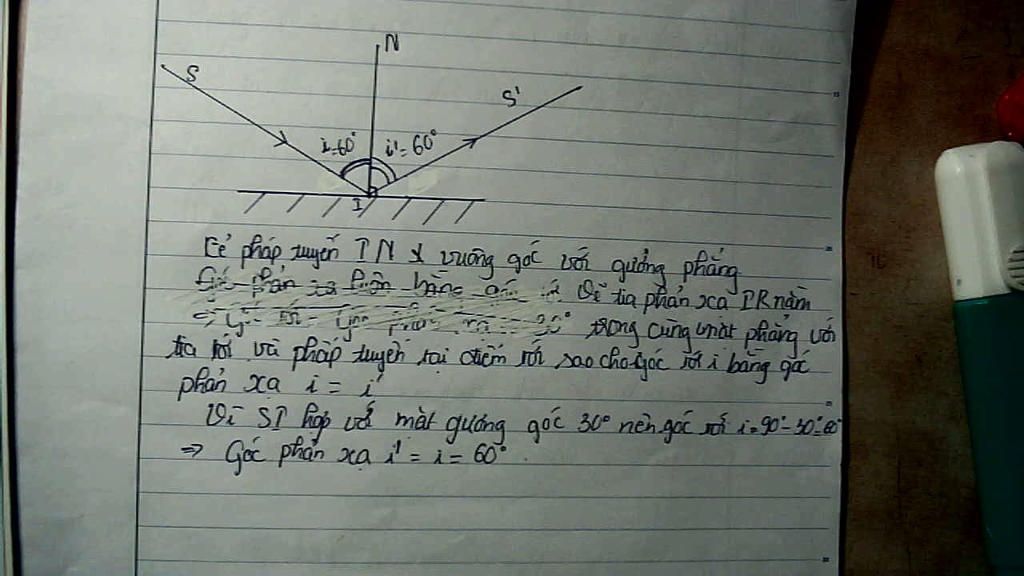 N
S
S'
i=60°
i'=60°
I
Kẻ pháp tuyến IN vuông góc với gưởng phẳng
Vẽ tia phản xạ IR nằm
trong cùng mặt phẳng với
tia tới và pháp tuyến tại điểm tới sao cho góc tới i bằng góc
phản xạ i = i'
Vì SI hợp với mặt gương góc 30° nên góc tới i=90°-30°=60°
⇒ Góc phản xạ i' = i = 60°.